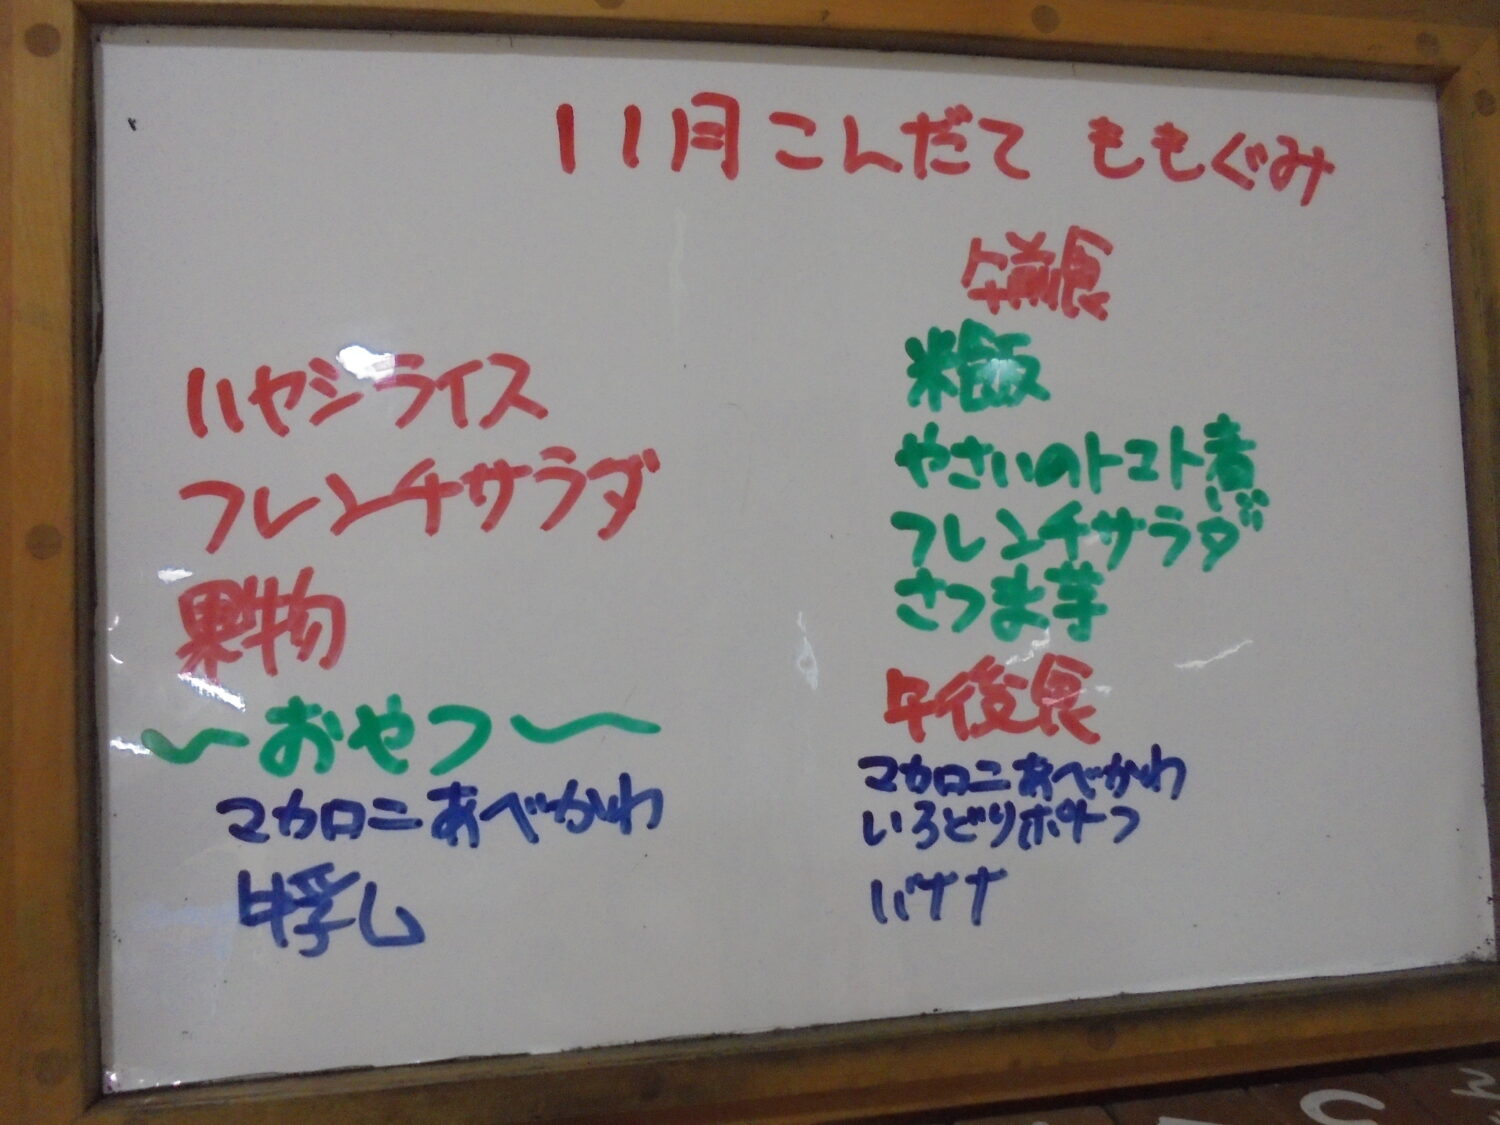 11月こんだて ももぐみ
ハヤシライス
フレンチサラダ
果物
〜おやつ〜
マカロニあべかわ
牛乳
午前食
米飯
やさいのトマト煮
フレンチサラダ
さつま芋
午後食
マカロニあべかわ
いろどりポトフ
バナナ